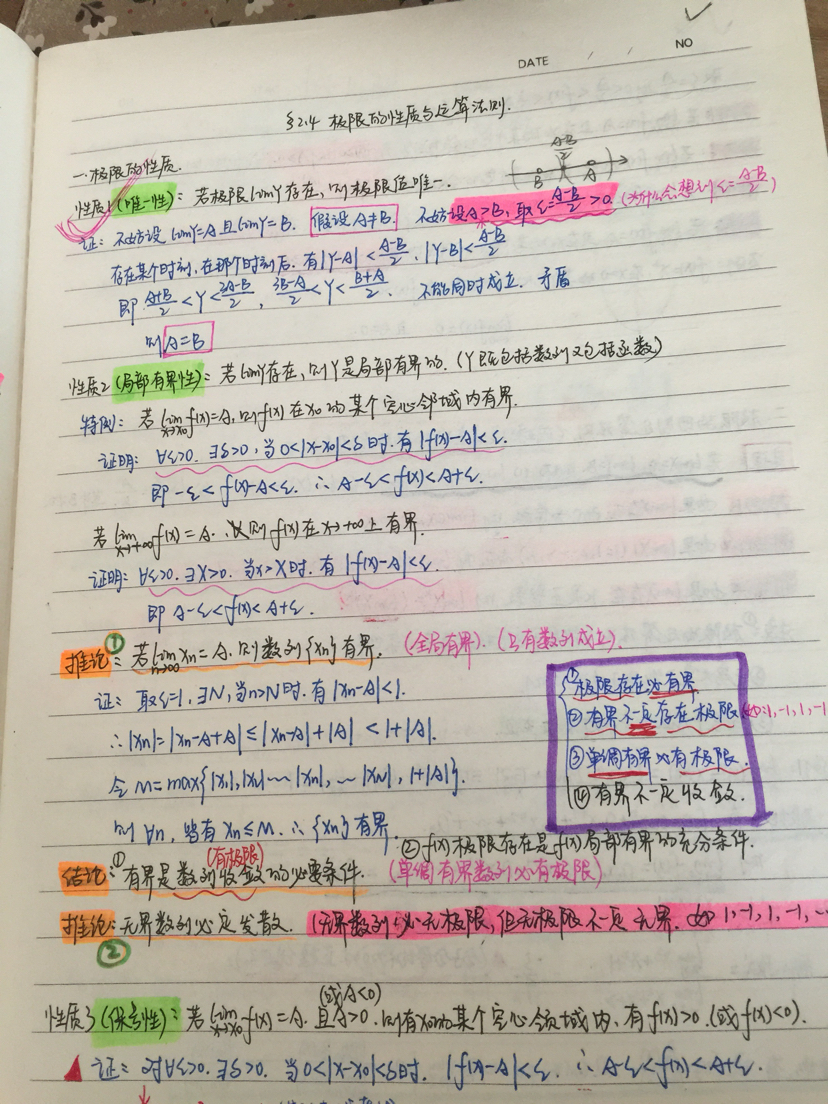 DATE / / NO
§2.4 极限的性质与运算法则.
一.极限的性质.
A-B/2
B A
性质1(唯一性): 若极限limY存在,则极限值唯一.
证: 不妨设 limY=A 且limY=B. 假设A≠B. 不妨设A>B, 取ε=A-B/2>0. (为什么会想到ε=A-B/2)
存在某个时刻,在那个时刻后. 有|Y-A|<A-B/2. |Y-B|<A-B/2
即 A+B/2<Y<3A-B/2, 3B-A/2<Y<B+A/2. 不能同时成立. 矛盾
则A=B
性质2(局部有界性): 若limY存在,则Y是局部有界的. (Y既包括数列又包括函数)
特例: 若lim x→x0 f(x)=A, 则f(x)在x0的某个空心邻域内有界.
证明: ∀ε>0. ∃δ>0, 当0<|x-x0|<δ时. 有|f(x)-A|<ε.
即-ε<f(x)-A<ε. ∴A-ε<f(x)<A+ε.
若lim x→+∞ f(x)=A. 则f(x)在x→+∞上有界.
证明: ∀ε>0. ∃X>0. 当x>X时. 有|f(x)-A|<ε.
即 A-ε<f(x)<A+ε.
推论①: 若lim n→∞ xn=A. 则数列{xn}有界. (全局有界). (只有数列成立).
证: 取ε=1, ∃N, 当n>N时. 有|xn-A|<1.
∴|xn|=|xn-A+A|≤|xn-A|+|A|<1+|A|.
令M=max{|x1|,|x2|…|xn|,…|xN|, 1+|A|}.
则∀n, 皆有xn≤M. ∴{xn}有界.
①极限存在必有界
②有界不一定存在极限 如:1,-1,1,-1
③单调有界必有极限.
④有界不一定收敛.
②f(x)极限存在是f(x)局部有界的充分条件.
结论:①有界是数列收敛的必要条件. (有极限) (单调有界数列必有极限)
推论②: 无界数列必定发散. (无界数列必无极限,但无极限不一定无界. 如1,-1,1,-1,…
性质3(保号性): 若lim x→x0 f(x)=A. 且A>0. (或A<0) 则有x0的某个空心领域内, 有f(x)>0. (或f(x)<0).
证: 对∀ε>0. ∃δ>0. 当0<|x-x0|<δ时. |f(x)-A|<ε. ∴A-ε<f(x)<A+ε.